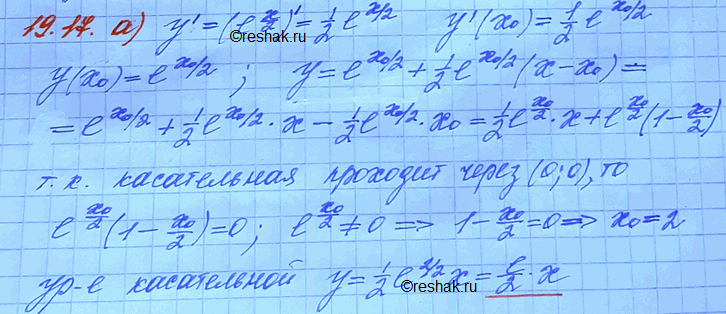 19.17. а) y' = (e^(x/2))' = 1/2 e^(x/2)   y'(x₀) = 1/2 e^(x₀/2)
©reshak.ru
y(x₀) = e^(x₀/2) ;   y = e^(x₀/2) + 1/2 e^(x₀/2) (x - x₀) =
= e^(x₀/2) + 1/2 e^(x₀/2) · x - 1/2 e^(x₀/2) · x₀ = 1/2 e^(x₀/2) · x + e^(x₀/2) (1 - x₀/2)
т. к. касательная проходит через (0; 0), то
e^(x₀/2) (1 - x₀/2) = 0 ;   e^(x₀/2) ≠ 0 => 1 - x₀/2 = 0 => x₀ = 2
ур-е касательной y = 1/2 e^(2/2) x = e/2 · x
©reshak.ru